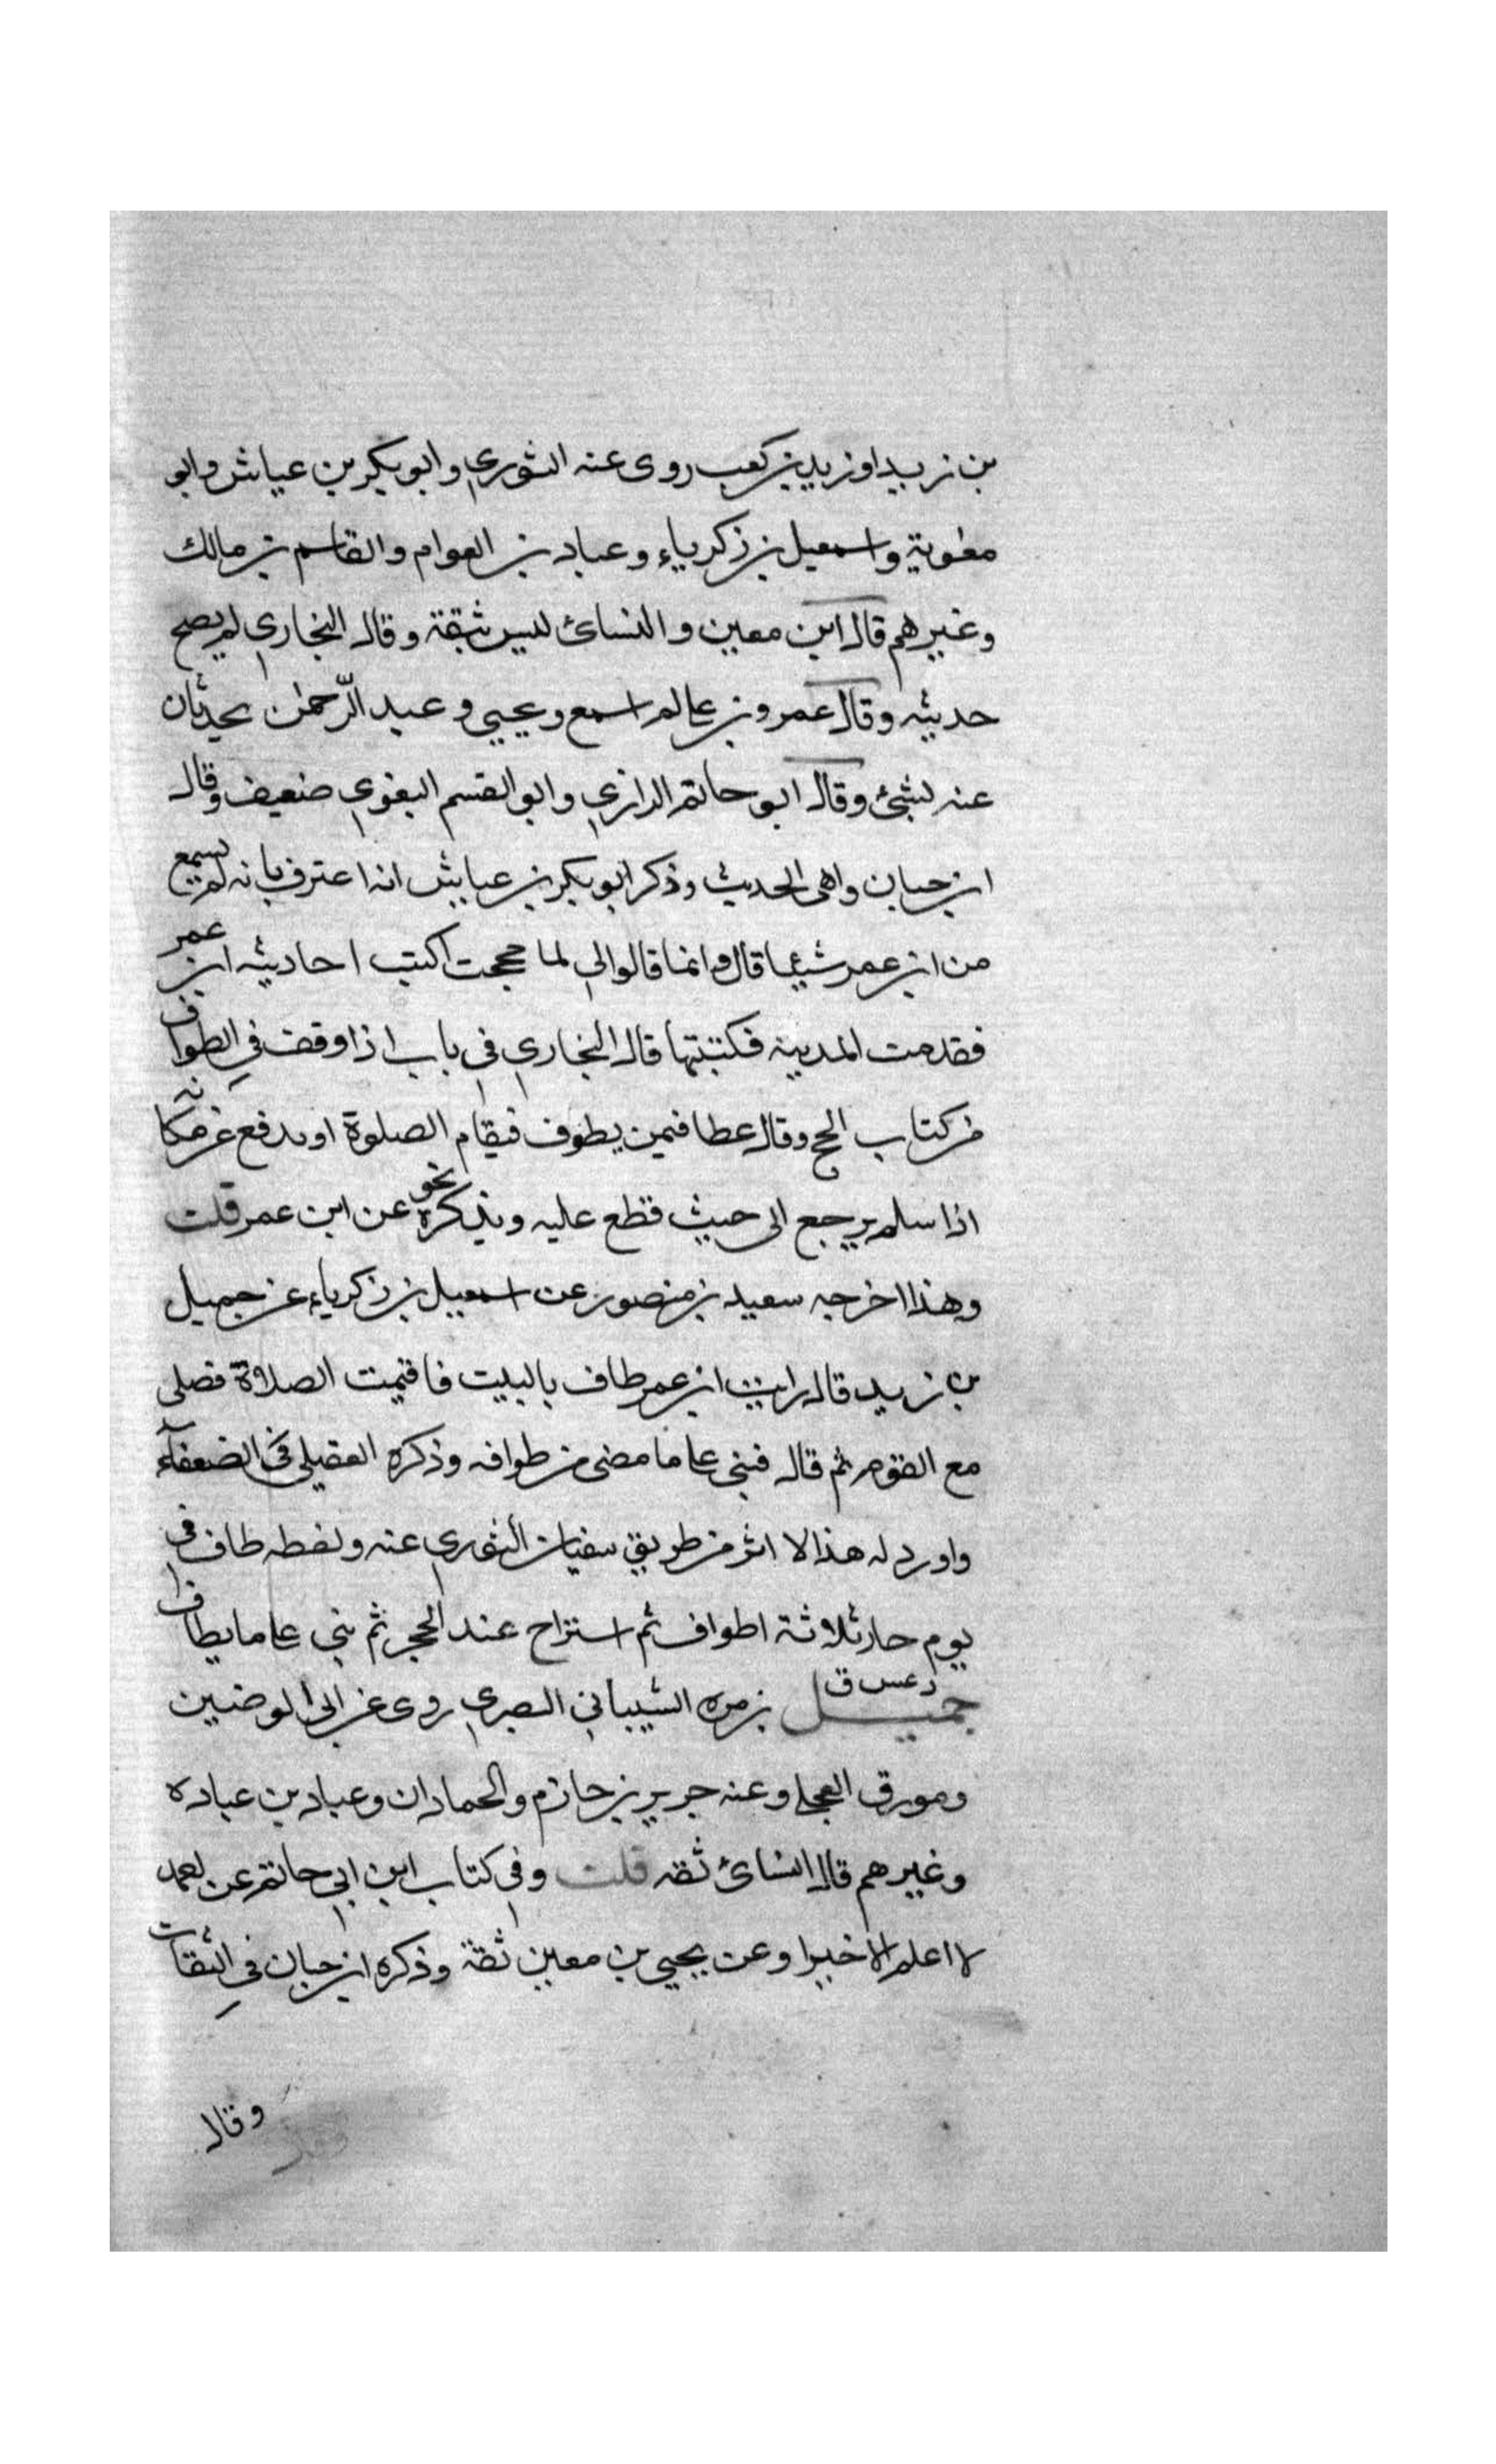 بن زيد او زيد بن كعب روى عنه الثوري وابو بكر بن عياش وابو
معوية واسمعيل بن زكرياء وعباد بن العوام والقاسم بن مالك
وغيرهم قال ابن معين والنسائ ليس بثقة وقال البخاري لم يصح
حديثه وقال عمرو بن عا لم اسمع ويحيي وعبد الرّحمن يحدثان
عنه لشئ وقال ابو حاتم الرازي وابو القسم البغوي ضعيف وقال
ابن حبان واهى الحديث وذكر ابو بكر بن عياش انه اعترف بانه لم يسمع
من ابن عمر شيئا قال وانما قالوا لي لما حججت اكتب احاديث ابن عمر
فقدمت المدينه فكتبتها قال البخاري في باب اذا وقف في الطواف
من كتاب الحج وقال عطا فيمن يطوف فيقام الصلوة او يدفع عن مكانه
اذا سلم يرجع الى حيث قطع عليه ويذكر نحوه عن ابن عمر قلت
وهذا اخرجه سعيد بن منصور عن اسمعيل بن زكرياء عن جميل
بن زيد قال رايت ابن عمر طاف بالبيت فاقيمت الصلاة فصلى
مع القوم ثم قال فبنى عا ما مضى من طوافه وذكره العقيلي في الضعفآء
واورد له هذا الاثر من طريق سفيان الثوري عنه ولفظه طاف في
يوم حار ثلاثة اطواف ثم استراح عند الحجر ثم بنى عا ما يطاف
د عس ق
جميل بن مره الشيباني البصري روى عن ابي الوضيين
ومورق العجلي وعنه جرير بن حازم والحمادان وعباد بن عباده
وغيرهم قال النسائ ثقه قلت وفي كتاب ابن ابي حاتم عن احمد
لا اعلم الا خيرا وعن يحيى بن معين ثقة وذكره ابن حبان في الثقات
وقال